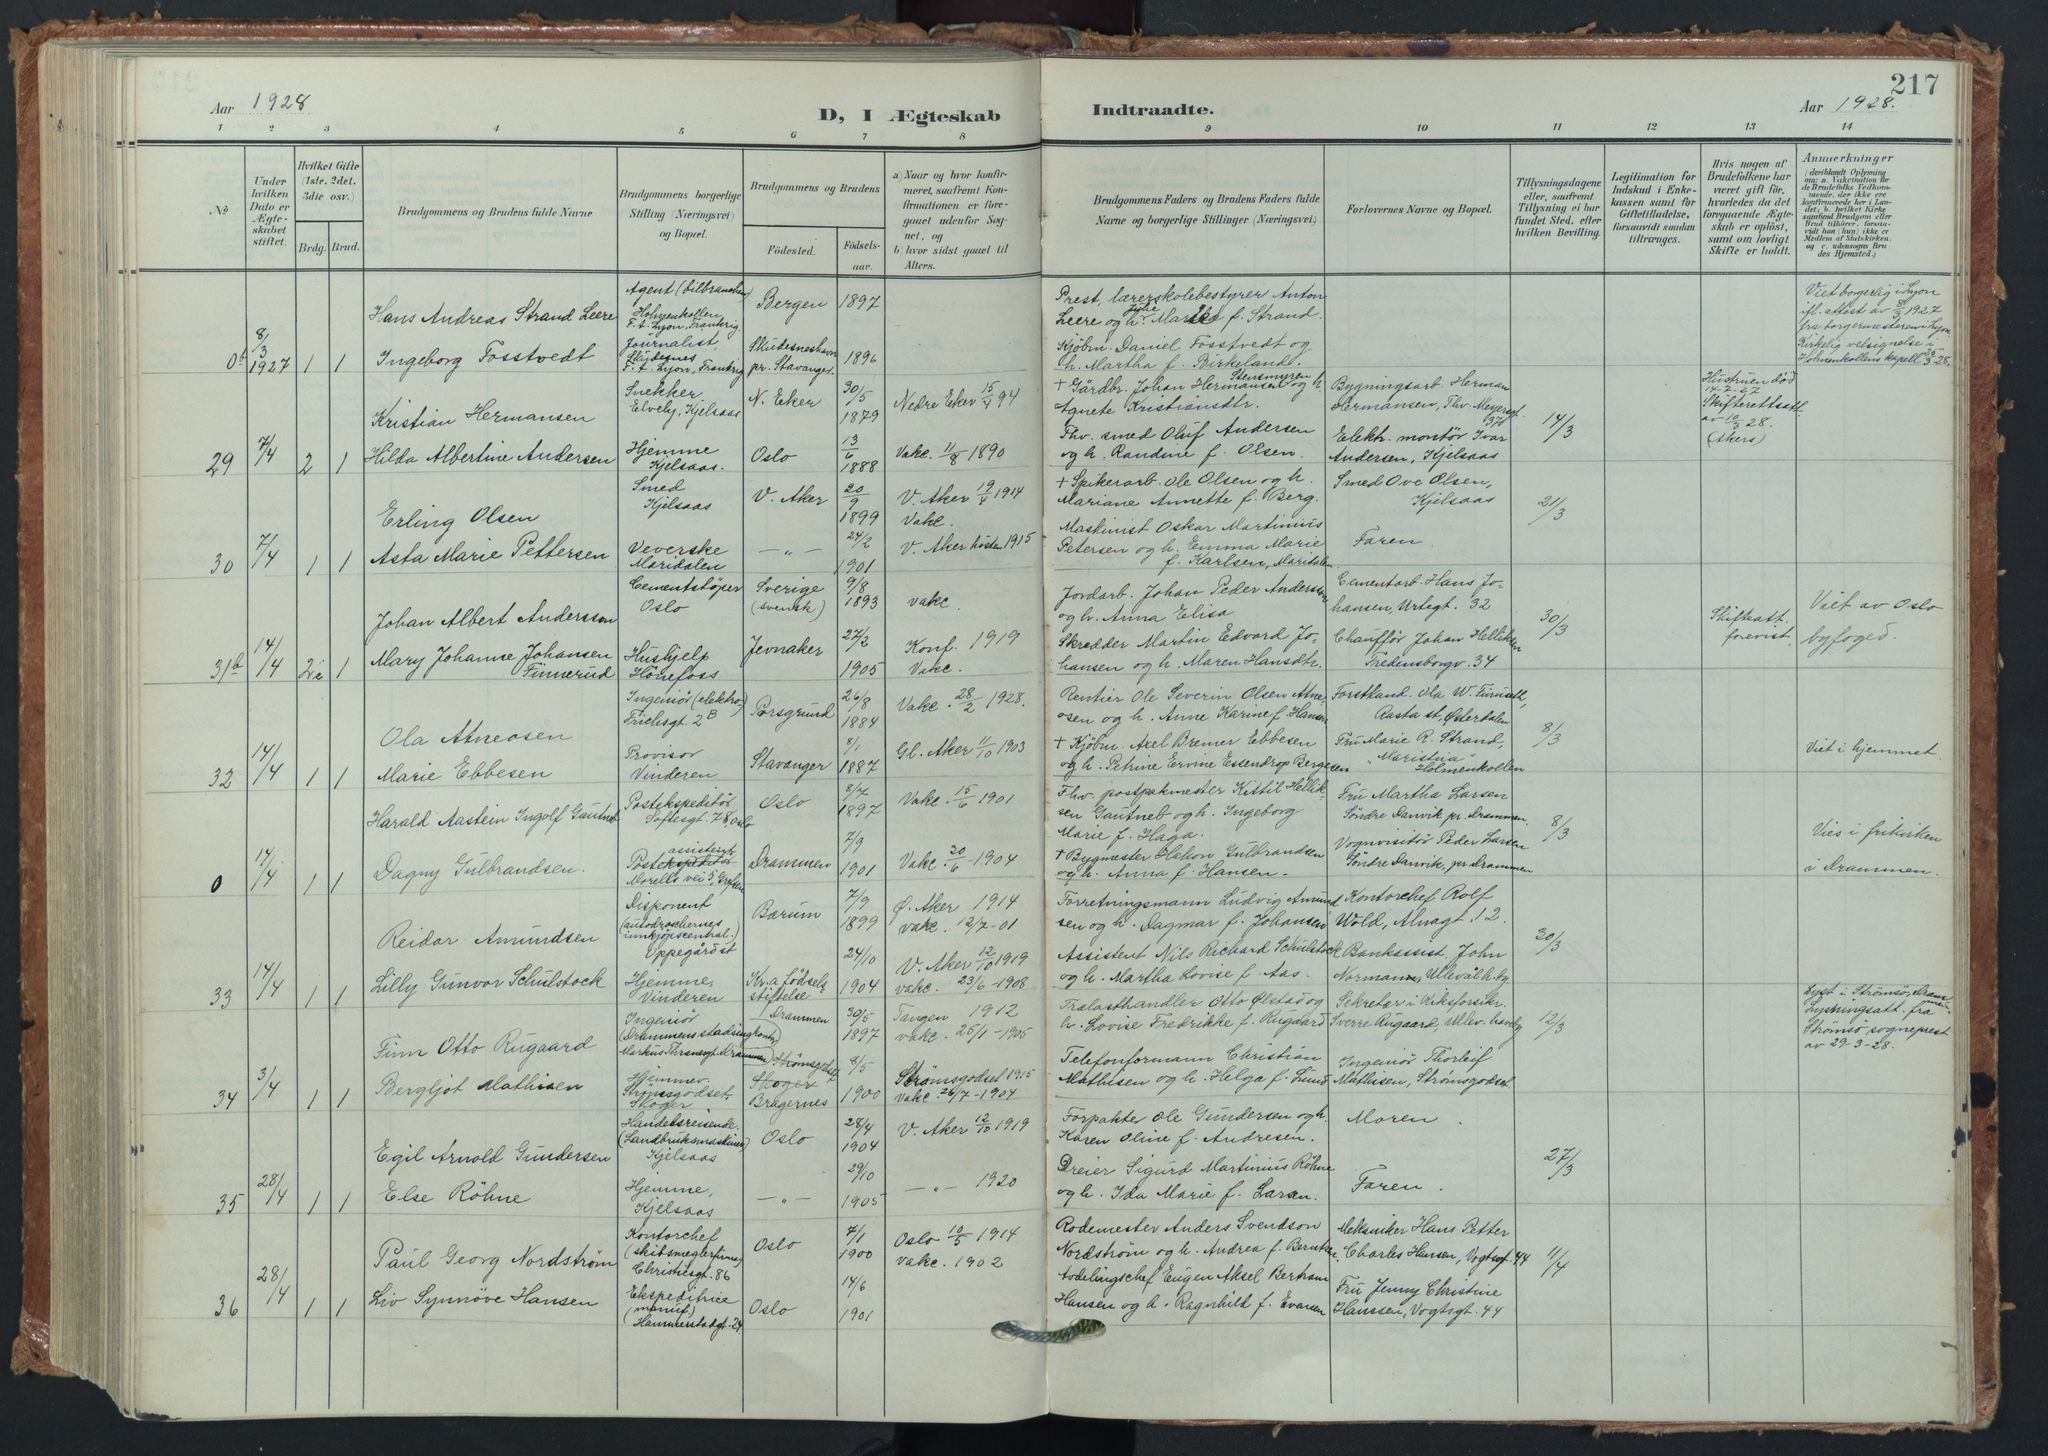 217
Aar 1928
D, I Ægteskab
Indtraadte.
Aar 1928.
1 2 3 4 5 6 7 8 9 10 11 12 13 14
No
Under hvilken Dato er Ægteskabet stiftet.
Hvilket Gifte (1ste, 2det, 3die osv.)
Brdg. Brud.
Brudgommens og Brudens fulde Navne
Brudgommens borgerlige Stilling (Næringsvei) og Bopæl.
Brudgommens og Brudens
Fødested. Fødselsaar.
a) Naar og hvor konfirmeret, saafremt Konfirmationen er foregaaet udenfor Sognet, og
b) hvor sidst gaaet til Alters.
Brudgommens Faders og Brudens Faders fulde Navne og borgerlige Stillinger (Næringsvei)
Forlovernes Navne og Bopæl.
Tillysningsdagene eller, saafremt Tillysning ei har fundet Sted, efter hvilken Bevilling.
Legitimation for Indskud i Enkekassen samt for Giftetilladelse, forsaavidt saadan tiltrænges.
Hvis nogen af Brudefolkene har været gift før, hvorledes da det foregaaende Ægteskab er opløst, samt om lovligt Skifte er holdt.
Anmerkninger
(deriblandt Oplysning om: a. Vakcination for de Brudefolks Vedkommende, der ikke ere konfirmerede her i Landet; b. hvilket Kirkesamfund Brudgom eller Brud tilhører, forsaavidt han (hun) ikke er Medlem af Statskirken, og c. udensogns Brudes Hjemsted.)
8/3 1927 1 1
Hans Andreas Strand Leere
Agent (bilbranchen)
Holmenkollen
F. t. Lyon, Frankrig
Bergen 1897
Prest, lærerskolebestyrer Anton
Leere og h. f. Strand.
Ingeborg Fosstvedt
Journalist
F. t. Lyon, Frankrig
Skudesneshavn
pr. Stavanger 1896
Kjøbm. Daniel Fosstvedt og
h. Martha f. Birkeland.
Viet borgerlig i Lyon
ifl. attest av 8/3 1927
fra borgermesteren i Lyon.
Kirkelig velsignelse i
Holmenkollens kapell 25-3-28.
29 7/4 2 1
Kristian Hermansen
Snekker
Elvely, Kjelsaas
N. Eker 30/5 1879
Nedre Eker 15/4 94
+ Gårdbr. Johan Hermansen Stensmyren og h.
Agnete Kristiansdtr.
Bygningsarb. Herman
Hermansen, Thv. Meyersgt. 37
14/3
Hustruen død
14-7-27
Skifterettsatt.
av 10/3 28.
(Akers)
Hilda Albertine Andersen
Hjemme
Kjelsaas.
Oslo 13/6 1888
Vakc. 11/8 1890
Fhv. smed Oluf Andersen
og h. Randine f. Olsen.
Elektr. montör Ivar
Andersen, Kjelsaas
30 7/4 1 1
Erling Olsen
Smed
Kjelsaas
V. Aker 20/9 1899
V. Aker 19/4 1914
Vakc.
+ Spikerarb. Ole Olsen og h.
Mariane Annette f. Berg.
Smed Ove Olsen,
Kjelsaas
21/3
Asta Marie Pettersen
Veverske
Maridalen
— „ — 24/2 1901
V. Aker høsten 1915
Maskinist Oskar Martinius
Petersen og h. Emma Marie
f. Karlsen, Maridalen.
Faren.
31b 14/4 2 1
Johan Albert Andersson
Cementstöper
Oslo
Sverige
(svensk) 9/8 1893
vakc.
Jordarb. Johan Peder Andersson
og h. Anna Elisa
Cementarb. Hans Jo-
hansen, Urtegt. 32
30/3
Skifteatt.
forevist.
Viet av Oslo
byfoged.
Mary Johanne Johansen
Finnerud
Hushjelp
Hönefoss
Jevnaker 27/2 1905
Konf. 1919
Vakc.
Skredder Martin Edvard Jo-
hansen og h. Maren Hansdtr.
Chauffør Johan Helliksen
Fredensborgv. 34
32 14/4 1 1
Ola Atneosen
Ingeniör (elektro)
Erichsgt. 2B
Porsgrund 26/8 1884
Vakc. 28/2 1928.
Rentier Ole Severin Olsen Atne-
osen og h. Anne Karine f. Hansen
Forstkand. Ola W. Furuseth,
Rasta st, Østerdalen
8/3
Viet i hjemmet.
Marie Ebbesen
Provisor
Vinderen
Stavanger 8/1 1887
Gl. Aker 11/10 1903
+ Kjöbm. Axel Bremer Ebbesen
og h. Petrine Ervine Essendrop Bergesen
Fru Marie R. Strand,
„Maristua"
Holmenkollen
0 14/4 1 1
Harald Aastein Ingolf Gautneb
Postekspeditör
Sofiesgt. 78 Oslo
Oslo 8/7 1897
Vakc. 15/6 1901
Fhv. postpakmester Kittil Hellik-
sen Gautneb og h. Ingeborg
Marie f. Haga.
Fru Martha Larsen
Söndre Danvik pr. Drammen.
8/3
Vies i frikirken
i Drammen.
Dagny Gulbrandsen.
Postassistent
Morells vei 5, Grefsen
Drammen 7/9 1901
Vakc. 20/6 1904
+ Bygmester Hakon Gulbrandsen
og h. Anna f. Hansen.
Vognvisitör Peder Larsen
Söndre Danvik, pr. Drammen
33 14/4 1 1
Reidar Amundsen
Disponent
(autodroschernes
innkjöpscentral.)
Oppegård st
Bærum 7/9 1899
Ø. Aker 1914
vakc. 12/7-01
Forretningsmann Ludvig Amund
sen og h. Dagmar f. Johansen
Kontorchef Rolf
Wold, Almagt. 12.
30/3
Lilly Gunvor Schulstock
Hjemme,
Vinderen
Kr.a födsels-
stiftelse 24/10 1904
V. Aker 12/10 1919
vakc. 23/6-1908
Assistent Nils Richard Schulstock
og h. Martha Lovise f. Aas.
Bankassist. John
Normann, Ullevål h.by
34 3/4 1 1
Finn Otto Rugaard
Ingeniör
Markus Thranesgt. Drammen)
Drammen 30/5 1897
Tangen 1912
vakc. 25/1-1905
Tralasthandler Otto Ølstad og
h. Lovise Fredrikke f. Rugaard
Sekretær i Riksforsikr.
Sverre Rugaard, Ullev. haveby
12/3
Lyst i Strömsö, Drammen.
Lysningsatt. fra
Strömsö sogneprest
av 29-3-28.
Bergljot Mathisen
Hjemmev.
Strömsgodset,
Skoger
Strömsgodset
Skoger
Bragernes 8/5 1900
Strömsgodset 1915
Vakc. 26/7-1904
Telefonformann Christian
Mathisen og h. Helga f. Lund
Ingeniör Thorleif
Mathisen, Strömsgodset
35 28/4 1 1
Egil Arnold Gundersen
Handelsreisende
(Landbruksmaskiner)
Kjelsaas
Oslo 28/4 1904
V. Aker 12/10 1919
Forpakter Ole Gundersen og h.
Karen Oline f. Andresen.
Moren.
27/3
Else Röhne
Hjemme,
Kjelsaas
— „ — 29/10 1905
— „ — 1920
Dreier Sigurd Martinius Röhne
og h. Ida Marie f. Larsen.
Faren.
36 28/4 1 1
Paul Georg Nordström
Kontorchef
(skibsmeglerfirma)
Christiesgt. 86
Oslo 7/1 1900
Oslo 10/5 1914
vakc. 1902
Rodemester Anders Svendson
Nordström og h. Andrea f. Berntsen.
Mekaniker Hans Petter
Charles Hansen, Vogtsgt. 44
11/4
Liv Synnöve Hansen
Ekspeditrice
(manuf.)
Hammerstadgt. 24
Oslo 14/6 1901
Avdelingschef Eugen Aksel Bertram
Hansen og h. Ragnhild f. Evensen
Fru Jenny Christine
Hanssen, Vogtsgt. 44